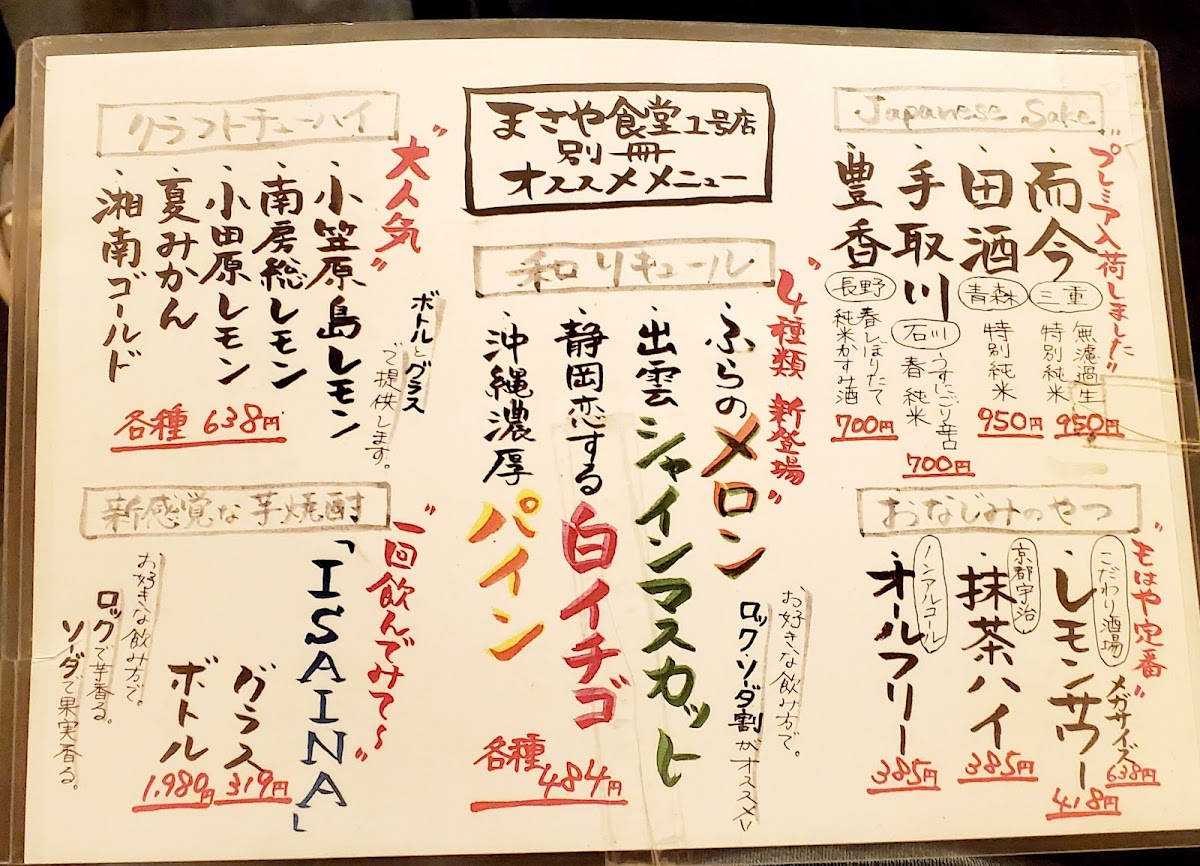 まさや食堂1号店
別冊
オススメメニュー
Japanese Sake
"プレミア入荷しました"
・而今
三重
無濾過生
特別純米
950円
・田酒
青森
特別純米
950円
・手取川
石川
うすにごり辛口
春 純米
700円
・豊香
長野
春しぼりたて
純米かすみ酒
700円
おなじみのやつ
"もはや定番"
こだわり酒場
・レモンサワー
418円
メガサイズ
638円
京都宇治
・抹茶ハイ
385円
ノンアルコール
・オールフリー
385円
和リキュール
"4種類 新登場"
・ふらのメロン
・出雲シャインマスカット
・静岡恋する白イチゴ
・沖縄濃厚パイン
各種 484円
お好きな飲み方で。
ロック、ソーダ割がオススメ!!
クラフトチューハイ
"大人気"
・小笠原島レモン
・南房総レモン
・小田原レモン
・夏みかん
・湘南ゴールド
各種 638円
ボトルとグラス
で提供します。
新感覚な芋焼酎
"一回飲んでみて〜"
「ISAINA」
グラス
319円
ボトル
1,980円
お好きな飲み方で。
ロックで芋香る。
ソーダで果実香る。